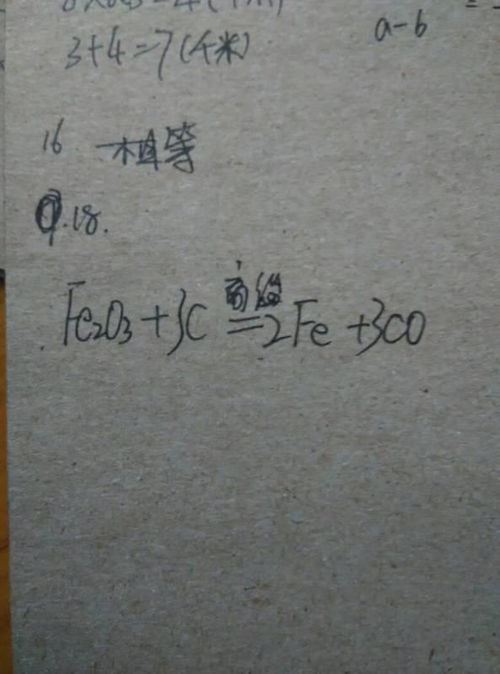 a-b
3+4=7(千米)
16 相等
9.18.
高温
Fe2O3+3C=2Fe+3CO